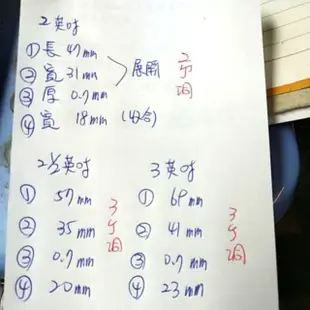 2英吋
①長 47mm
②寬 31mm
③厚 0.7mm
展開
④寬 18mm
2 1/2英吋
① 57mm
② 35mm
③ 0.7mm
④ 20mm
3英吋
① 69mm
② 41mm
③ 0.7mm
④ 23mm